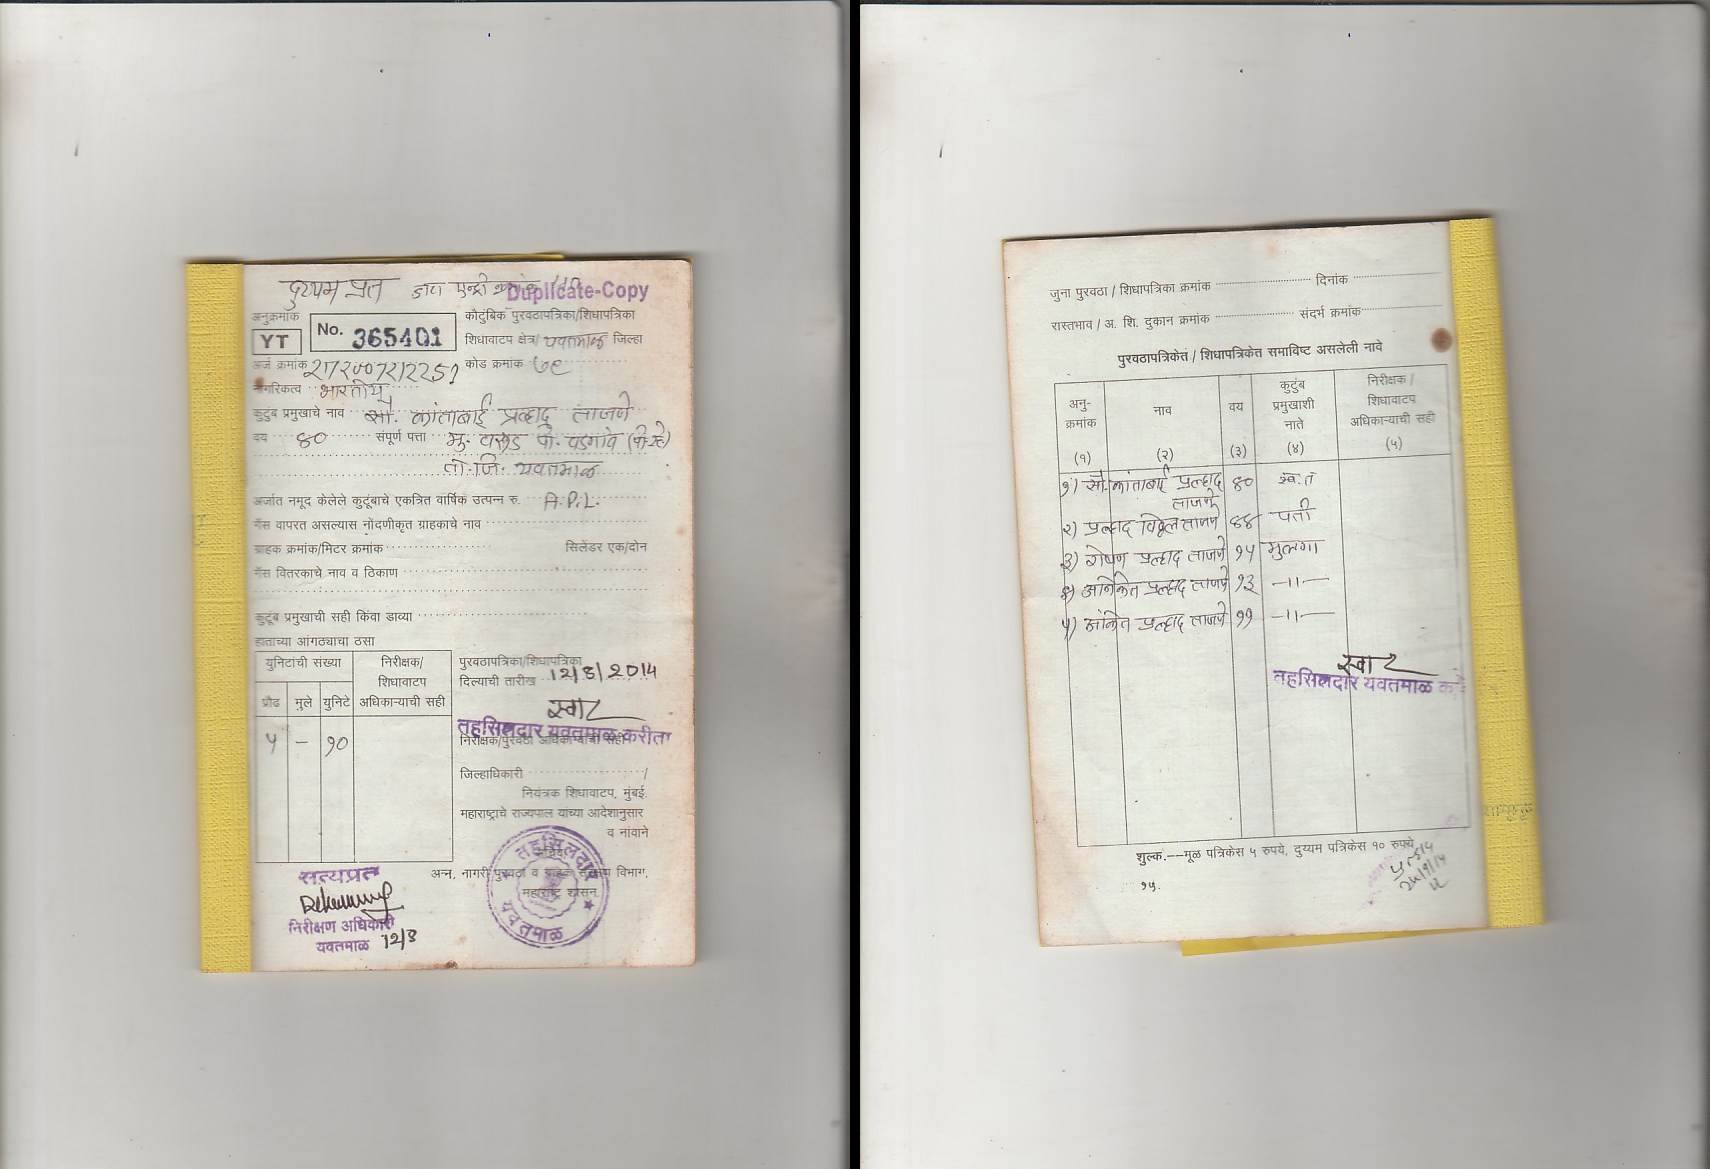 दुय्यम प्रत डाटा एन्ट्री
Duplicate-Copy
अनुक्रमांक
YT No. 365401
कौटुंबिक पुरवठापत्रिका/शिधापत्रिका
शिधावाटप क्षेत्र/ यवतमाळ जिल्हा
अर्ज क्रमांक
कोड क्रमांक ७९
नागरिकत्व भारतीय
कुटुंब प्रमुखाचे नाव सौ. कांताबाई प्रल्हाद लाजणे
वय ४० संपूर्ण पत्ता मु. पो.
ता. जि. यवतमाळ
अर्जात नमूद केलेले कुटूंबाचे एकत्रित वार्षिक उत्पन्न रु. A.P.L.
गॅस वापरत असल्यास नोंदणीकृत ग्राहकाचे नाव
ग्राहक क्रमांक/मिटर क्रमांक सिलेंडर एक/दोन
गॅस वितरकाचे नाव व ठिकाण
कुटूंब प्रमुखाची सही किंवा डाव्या
हाताच्या आंगठ्याचा ठसा
युनिटांची संख्या
निरीक्षक/
शिधावाटप
अधिकाऱ्याची सही
प्रौढ मुले युनिटे
५ – १०
पुरवठापत्रिका/शिधापत्रिका
दिल्याची तारीख 12/8/2014
तहसिलदार यवतमाळ करीता
निरीक्षक/पुरवठा अधिकाऱ्याची सही
जिल्हाधिकारी /
नियंत्रक शिधावाटप, मुंबई.
महाराष्ट्राचे राज्यपाल यांच्या आदेशानुसार
व नांवाने
अन्न, नागरी पुरवठा व ग्राहक संरक्षण विभाग,
महाराष्ट्र शासन
तहसिलदार
यवतमाळ
सत्यप्रत
निरीक्षण अधिकारी
यवतमाळ 12/8
जुना पुरवठा / शिधापत्रिका क्रमांक दिनांक
रास्तभाव / अ. शि. दुकान क्रमांक संदर्भ क्रमांक
पुरवठापत्रिकेत / शिधापत्रिकेत समाविष्ट असलेली नावे
अनु-
क्रमांक
नाव
वय
कुटुंब
प्रमुखाशी
नाते
निरीक्षक /
शिधावाटप
अधिकाऱ्याची सही
(१) (२) (३) (४) (५)
१) सौ. कांताबाई प्रल्हाद लाजणे ४० स्वतः
२) प्रल्हाद विठ्ठल लाजणे ४४ पती
३) रोषण प्रल्हाद लाजणे १५ मुलगा
४) अनिकेत प्रल्हाद लाजणे १३ –॥–
५) अंकित प्रल्हाद लाजणे ११ –॥–
तहसिलदार यवतमाळ
शुल्क.--मूळ पत्रिकेस ५ रुपये, दुय्यम पत्रिकेस १० रुपये
१५.